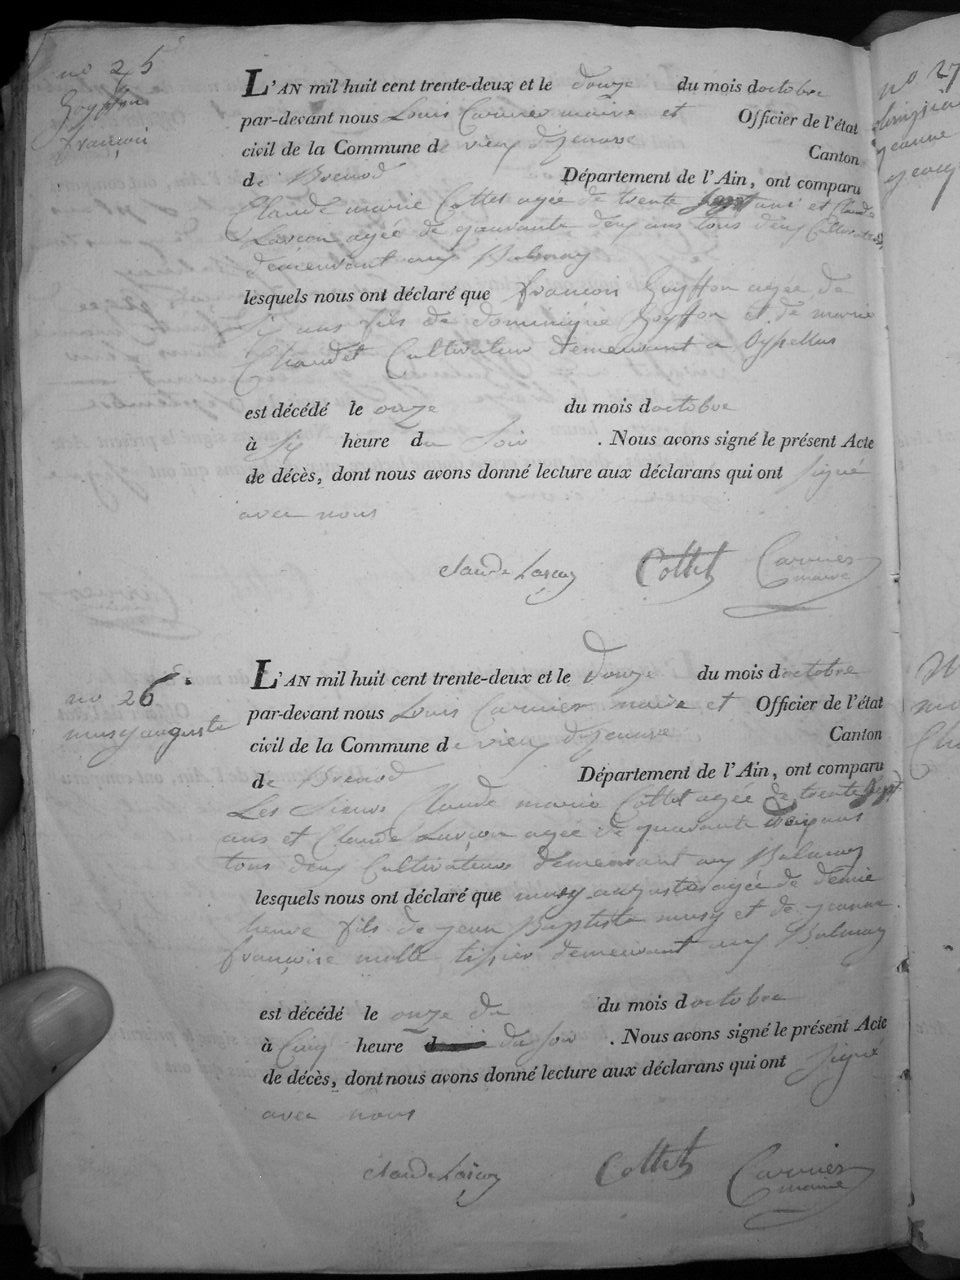 no 25
Goyffon
françoi
L'AN mil huit cent trente-deux et le douze du mois doctobre
par-devant nous Louis Carrier maire et Officier de l'état
civil de la Commune de vieu dyzenave Canton
de Brenod Département de l'Ain, ont comparu
Claude marie Cottet agée de trente sept ans et Claude
Larcon agée de quavante deux ans tous deux Cultivateurs
demeurant aux Balmay
lesquels nous ont déclaré que francois Goyffon agée de
six ans fils de dominique Goyffon et de marie
Chaudet Cultivateur demeurant a
est décédé le onze du mois doctobre
à six heure du soir . Nous avons signé le présent Acte
de décès, dont nous avons donné lecture aux déclarans qui ont signé
avec nous
claude Larcon Cottet Carrier
maire
no 26
musy auguste
L'AN mil huit cent trente-deux et le douze du mois doctobre
par-devant nous Louis Carrier maire et Officier de l'état
civil de la Commune de vieu dyzenave Canton
de Brenod Département de l'Ain, ont comparu
Les Sieurs Claude marie Cottet agée de trente sept
ans et Claude Larçon agée de quavante deux ans
tous deux Cultivateurs demeurant aux Balmay
lesquels nous ont déclaré que musy auguste agée de demie
heure fils de jean Baptiste musy et de jeanne
françoise molle tissier demeurant aux Balmay
est décédé le onze du du mois doctobre
à Cinq heure du soir . Nous avons signé le présent Acte
de décès, dont nous avons donné lecture aux déclarans qui ont signé
avec nous
claude Larçon Cottet Carrier
maire
no 27
jeanne